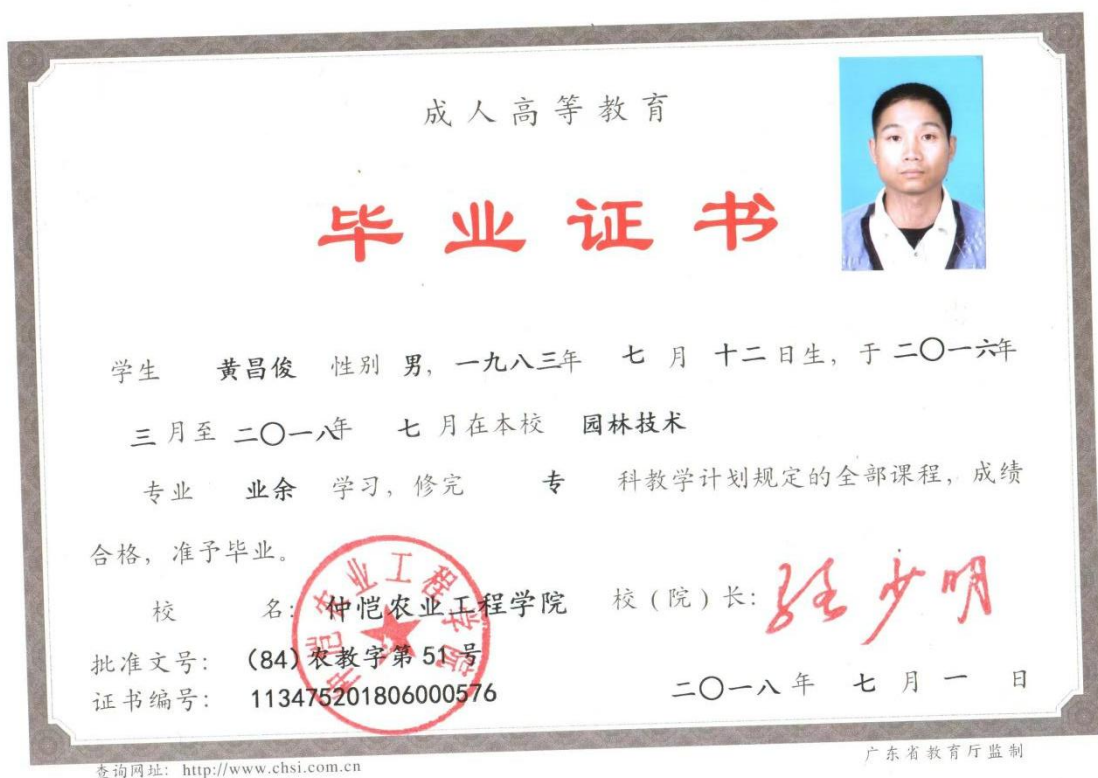 成人高等教育
毕业证书
学生 黄昌俊 性别 男，一九八三年 七 月 十二 日生，于 二〇一六年
三 月至 二〇一八年 七 月在本校 园林技术
专业 业余 学习，修完 专 科教学计划规定的全部课程，成绩
合格，准予毕业。
校 名： 仲恺农业工程学院 校（院）长：
仲恺农业工程学院
批准文号： （84）农教字第 51 号
证书编号： 113475201806000576
二〇一八 年 七 月 一 日
查询网址：http://www.chsi.com.cn
广东省教育厅监制